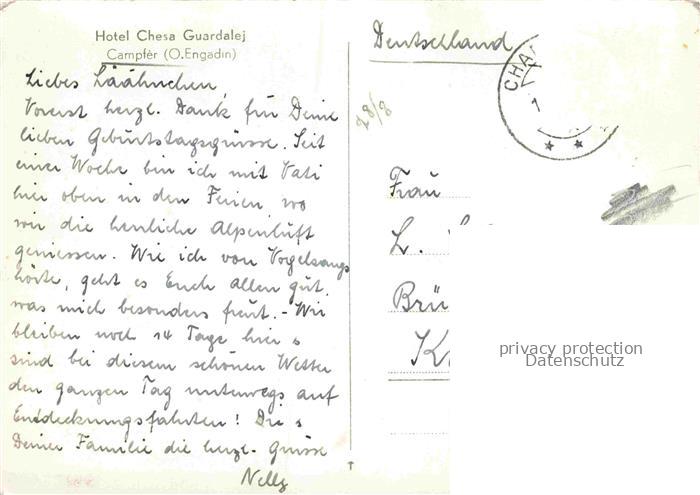 Hotel Chesa Guardalej
Campfèr (O.Engadin)
Liebes Läähnchen,
Vorerst herzl. Dank für Deine
lieben Geburtstagsgrüsse. Seit
einer Woche bin ich mit Vati
hier oben in den Ferien, wo
wir die herrliche Alpenluft
geniessen. Wie ich von Vogelsangs
hörte, geht es Euch allen gut,
was mich besonders freut. - Wir
bleiben noch 14 Tage hier &
sind bei diesem schönen Wetter
den ganzen Tag unterwegs auf
Entdeckungsfahrten! Dir &
Deiner Familie die herzl. Grüsse
Nelly
Deutschland
CHA
28/8
Frau
L.
Brü
K
privacy protection
Datenschutz